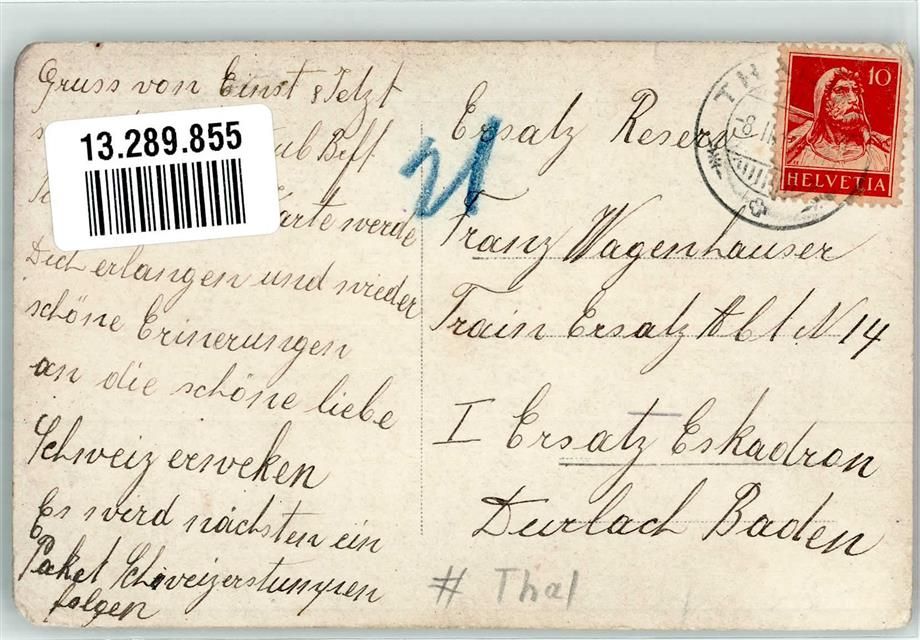 Gruss von Einst & Jetzt
13.289.855
Karte werde
Dich erlangen und wieder
schöne Erinerungen
an die schöne liebe
Schweiz erweken
Es wird nächsten ein
Paket Schweizerstumpen
folgen
21
Ersatz Reserv
Franz Wagenhauser
Train Ersatz Abt N 14
I Ersatz Eskadron
Durlach Baden
# Thal
TH
10
HELVETIA